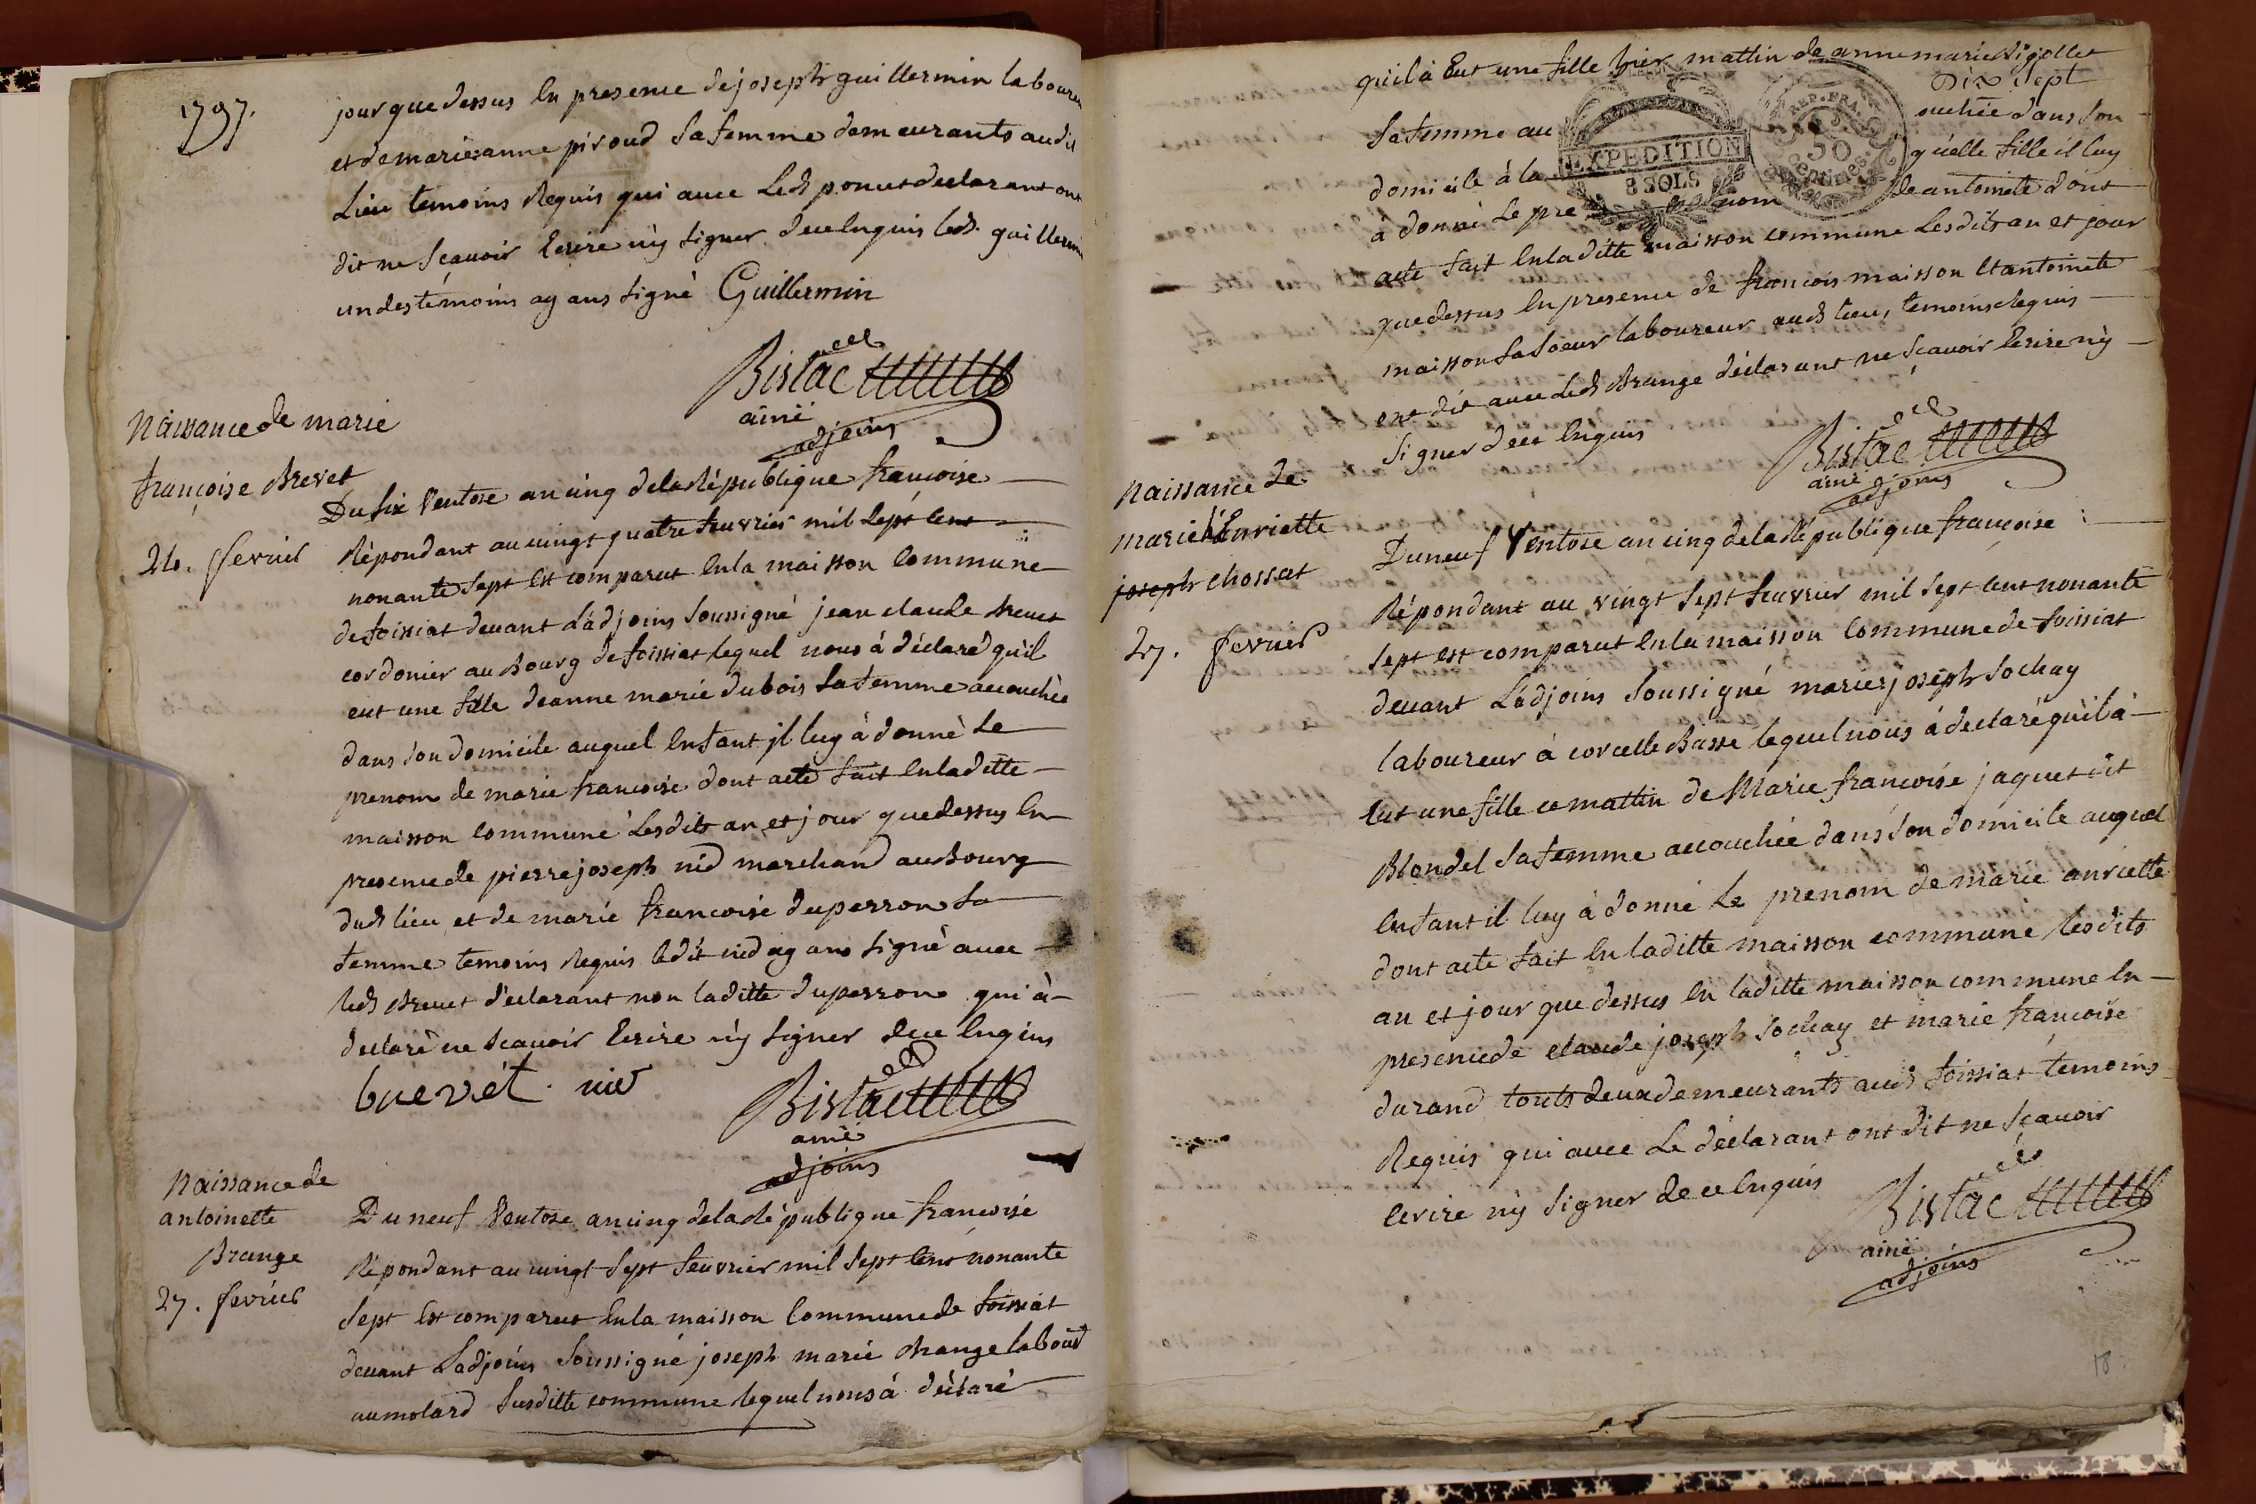 1797.
jour que dessus En presence de joseph guillermin laboureu
et de marie anne piroud sa femme demeurants audit
Lieu temoins Requis qui avec Led declarant ont
dit ne scavoir Ecrire ny signer dece Enquis led. guillermin
un des témoins ayans signé Guillermin
Bistac
ainé
adjoins
Naissance de marie
françoise Brevet
24. fevrier
Du six Ventose an cinq de la République francoise
Répondant au vingt quatre feuvrier mil sept Cent
nonante sept Est comparut En la maison Commune
de foissiat devant L'adjoins soussigné jean claude Brevet
cordonier au Bourg de foissiat lequel nous à déclaré qu'il
eut une fille deanne marie dubois sa femme accouchée
dans son domicile auquel Enfant jl luy à donné Le
prenom de marie francoise dont acte fait En laditte
maison Commune Lesdits an et jour que dessus En
presence de pierre joseph nid marchand au Bourg
dud lieu et de marie francoise duperron sa
femme temoins Requis ledit nid ayans signé avec
led Brevet déclarant non laditte duperron qui à
déclaré ne scavoir Ecrire ny signer dece Enquis
brevét. nid
Bistac
ainé
adjoins
Naissance de
antoinette
Brange
27. fevrier
Du neuf Ventose an cinq de la République francoise
Répondant au vingt sept feuvrier mil sept Cent nonante
sept Est comparut En la maison Commune de foissiat
devant Ladjoins soussigné joseph marie Brange labour
au molard susditte commune lequel nous à déclaré
qu'il à Eut une fille hier mattin de anne marie Rigollet
Dix sept
sa femme au ouchée dans son
EXPEDITION
8 SOLS
REP. FRA.
50
centimes
domicile à la quelle fille il luy
à donné Le pre nom de antoinete dont
acte fait En laditte maison commune Lesdits an et jour
que dessus En presence de francois maisson Et antoinete
maisson sa soeur laboureur aud lieu, temoins Requis
ont dit avec Led Brange déclarant ne scavoir Ecrire ny
signer dece Enquis
Bistac
ainé
adjoins
Naissance de
marie Enriette
joseph chossat
27. fevrier
Du neuf Ventose an cinq de la République francoise
Répondant au vingt sept feuvrier mil sept Cent nonante
sept est comparut En la maison Commune de foissiat
devant Ladjoins soussigné marie joseph sochay
laboureur à corcelle Basse lequel nous à déclaré qu'il à
Eut une fille ce mattin de Marie francoise jaquet dit
Blondel sa femme accouchée dans son domicile auquel
Enfant il luy à donné Le prenom de marie anriette
dont acte fait En laditte maison commune lesdits
an et jour que dessus En laditte maison commune En
presence de claude joseph sochay et marie francoise
durand touts deux demeurants aud foissiat temoins
Requis qui avec Le déclarant ont dit ne scavoir
Ecrire ny signer de ce Enquis
Bistac
ainé
adjoins
18